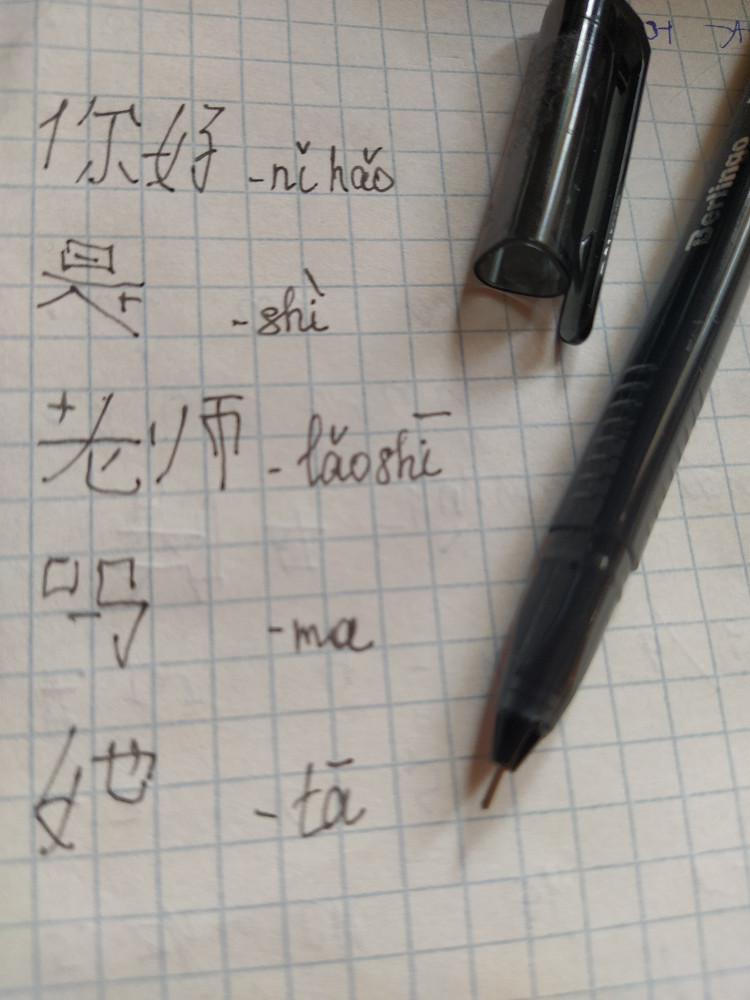 你好 -nǐ hǎo
是 -shì
老师 -lǎoshī
吗 -ma
她 -tā
Berlingo